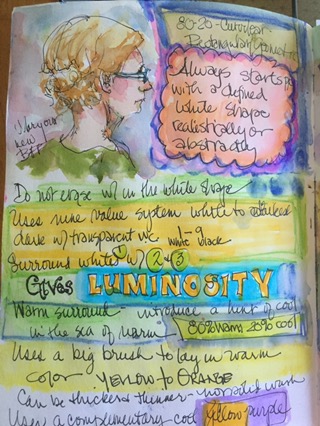 80-20-
Always starts
with a defined
white shape
realistically or
abstractly
new
BFF
Do not erase w/in the white shape
Uses nine value system white to
dark w/ transparent wc. white - black
Surround whites w/ 2 & 3
Gives LUMINOSITY
Warm surround introduce a hint of cool
in the sea of warm 80% warm 20% cool
Uses a big brush to lay in warm
color YELLOW to ORANGE
Can be thicker & thinner - wash
Uses a complementary cool yellow-purple